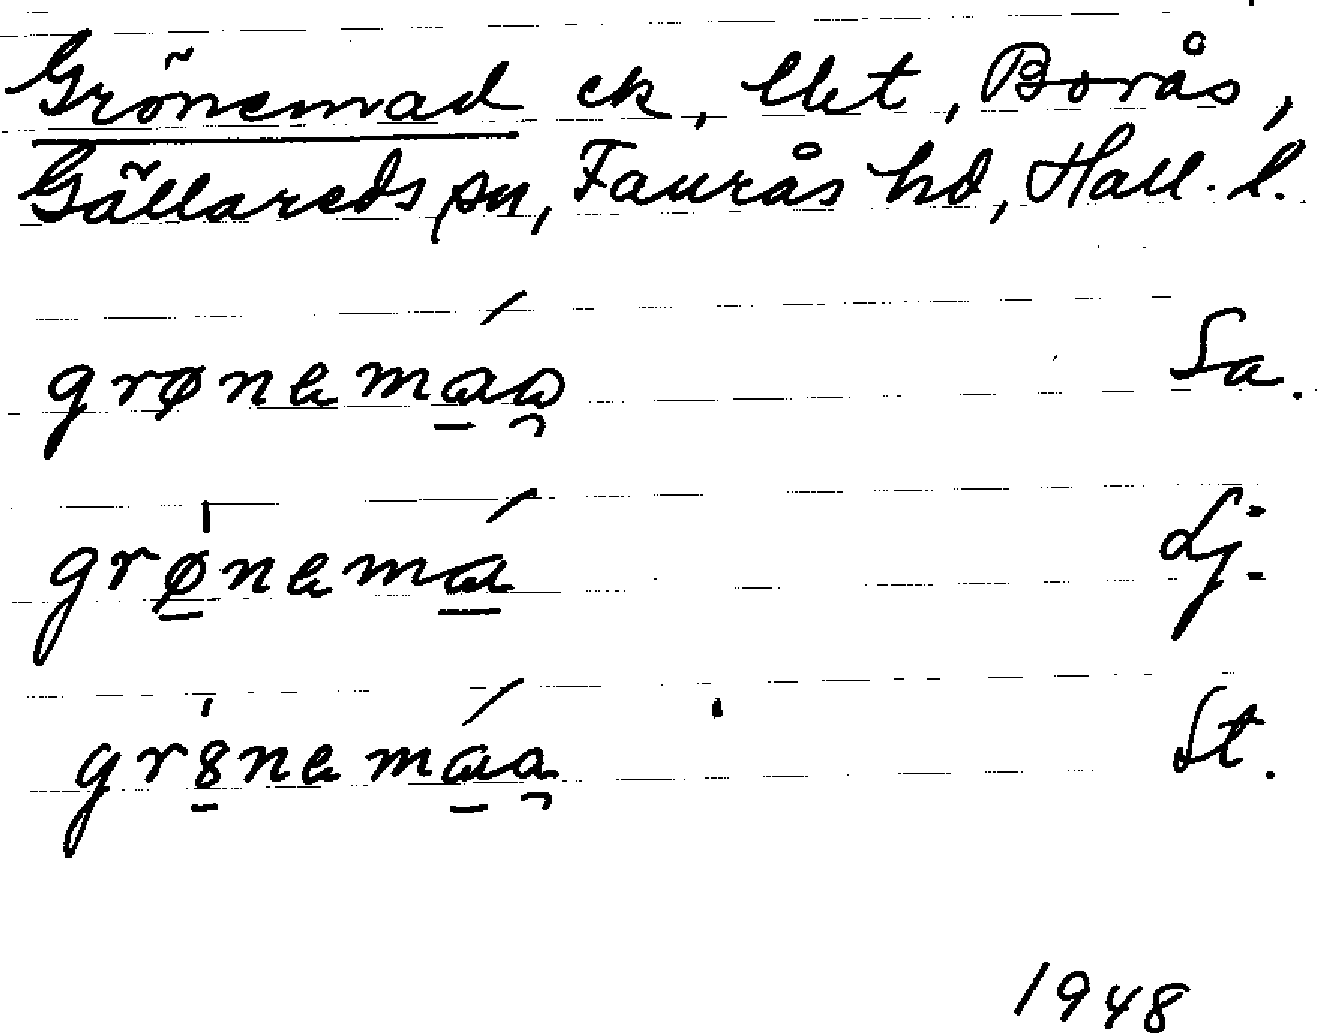 Grönemad ek, lbt, Borås,
Gällareds sn, Faurås hd, Hall. l.
grønemáa Sa.
grønemá Lj.
gr8nemáa St.
1948